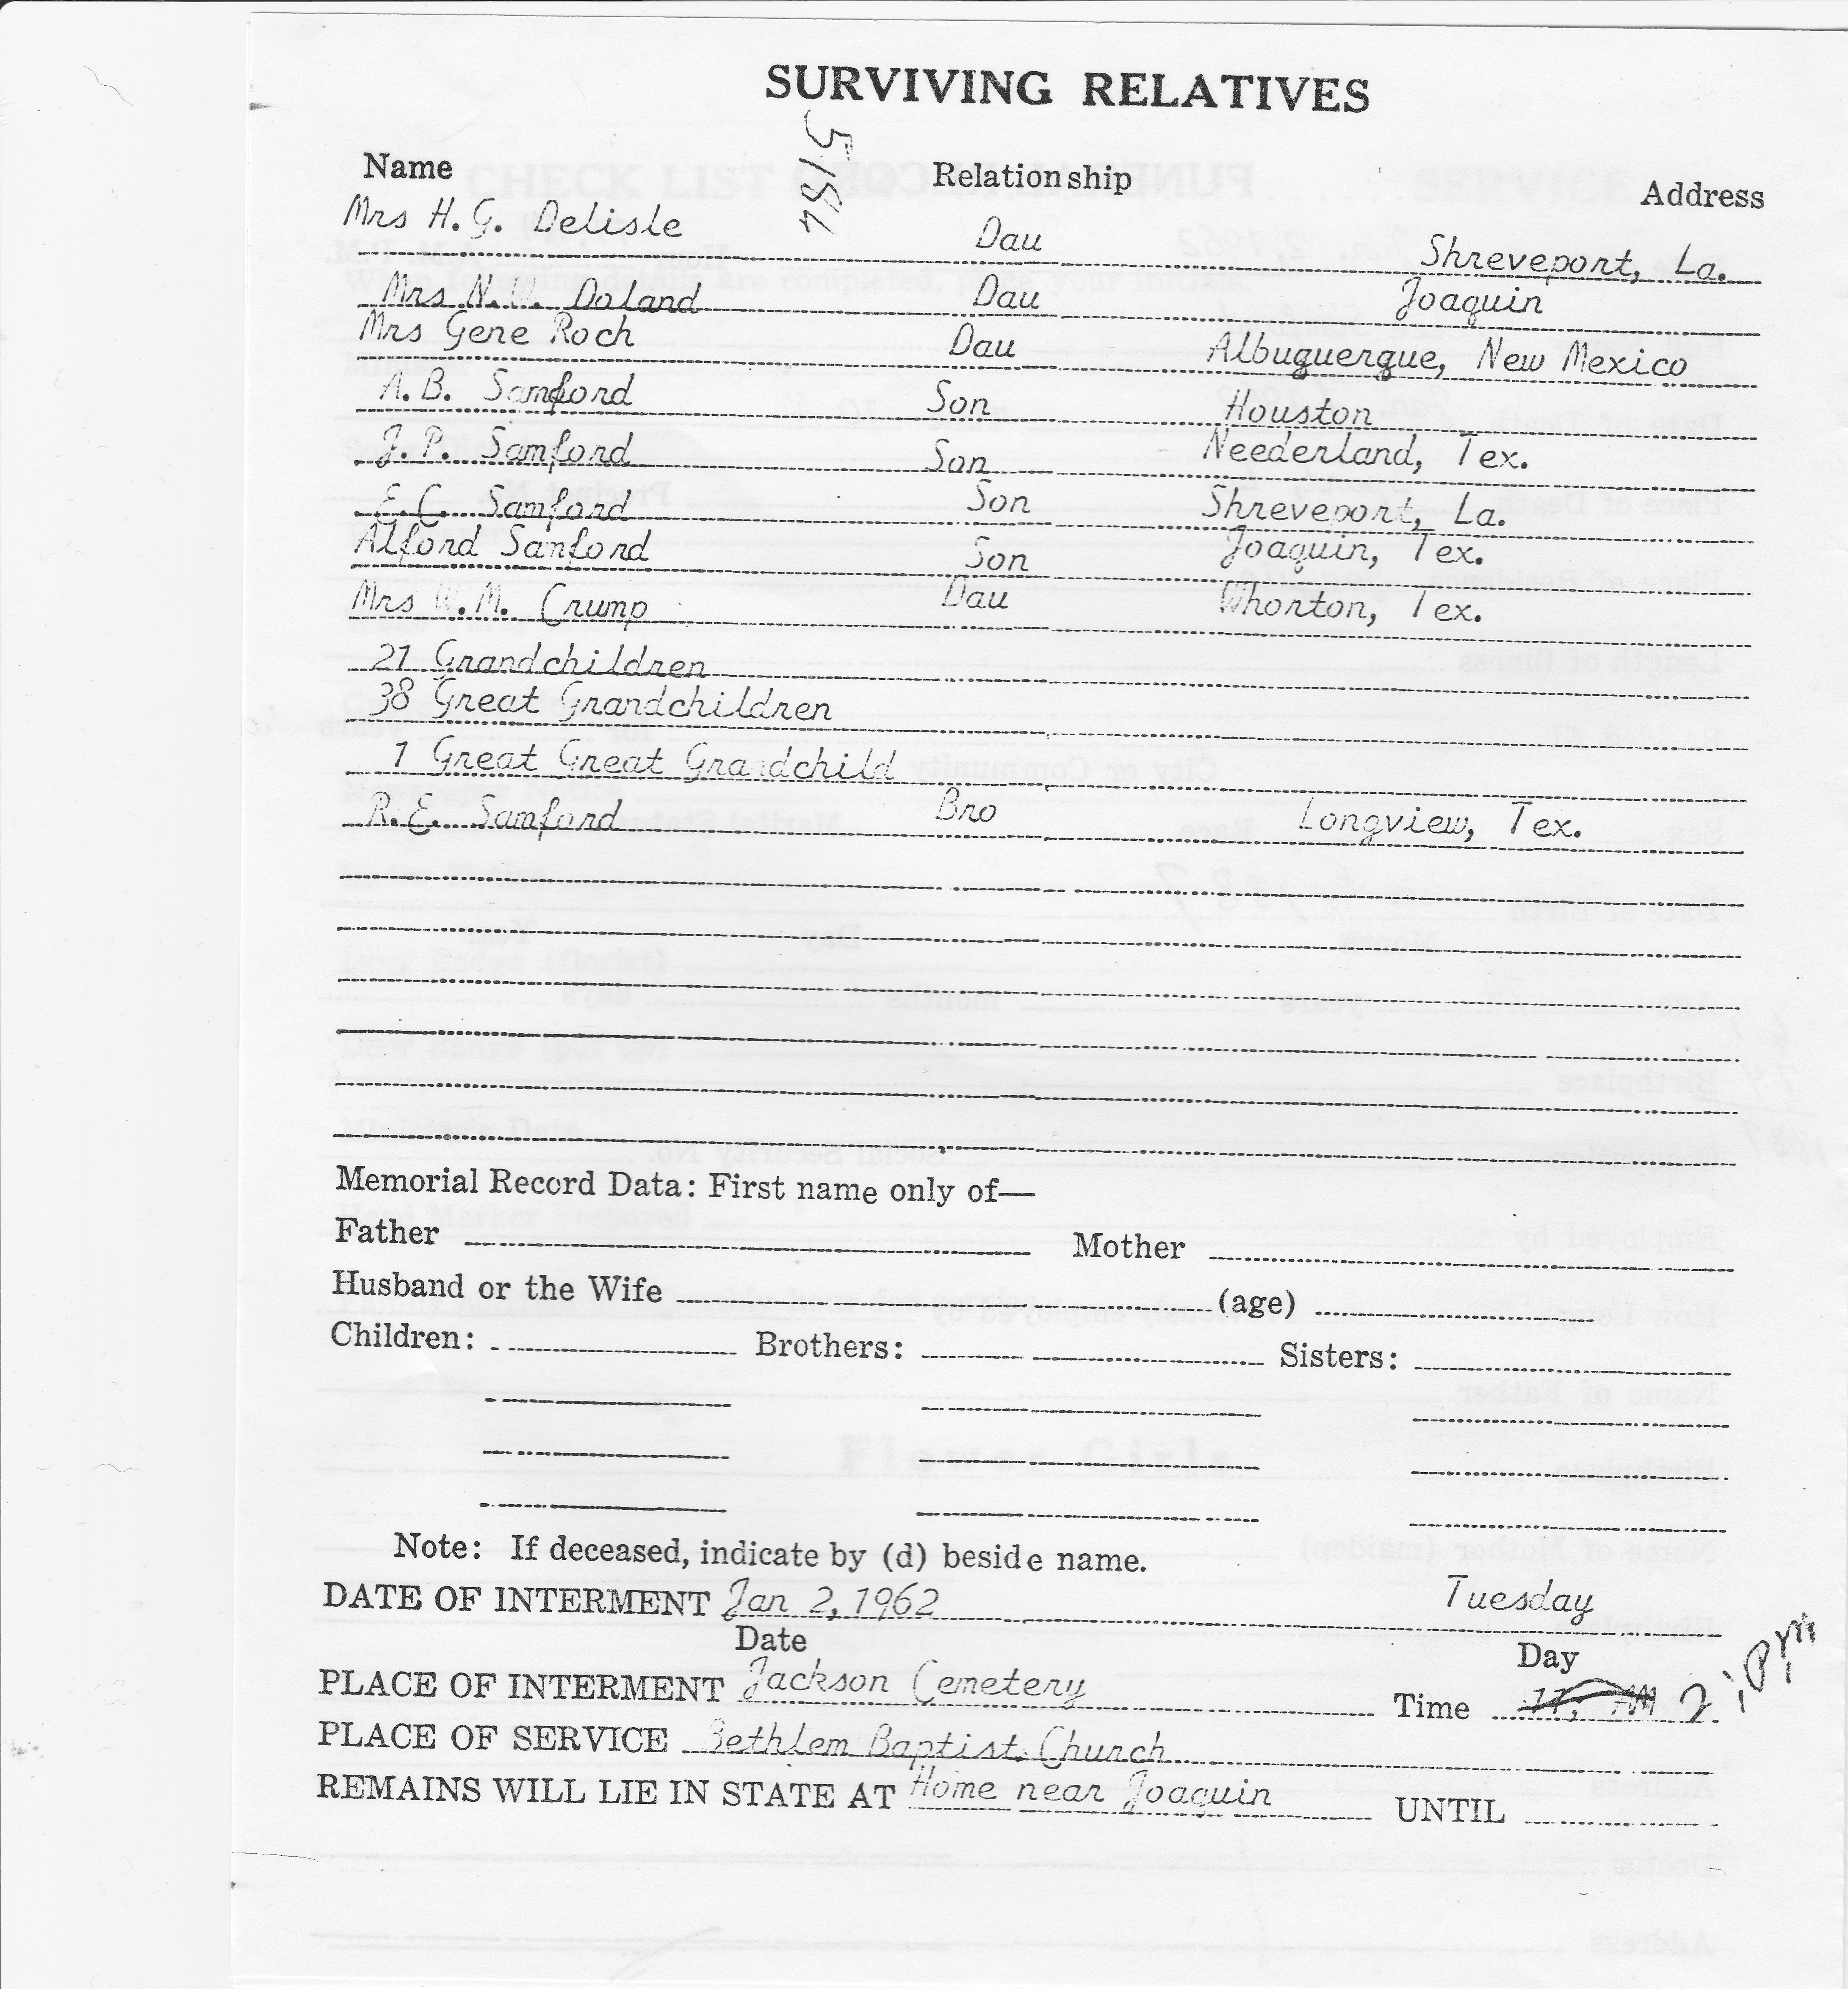 SURVIVING RELATIVES
5184
Name Relationship Address
Mrs H. G. Delisle Dau Shreveport, La.
Mrs N. W. Doland Dau Joaquin
Mrs Gene Roch Dau Albuguergue, New Mexico
A.B. Samford Son Houston
J.P. Samford Son Neederland, Tex.
E.C. Samford Son Shreveport, La.
Alford Sanford Son Joaquin, Tex.
Mrs W.M. Crump Dau Whorton, Tex.
21 Grandchildren
38 Great Grandchildren
1 Great Great Grandchild
R.E. Samford Bro Longview, Tex.
Memorial Record Data: First name only of—
Father Mother
Husband or the Wife (age)
Children: Brothers: Sisters:
Note: If deceased, indicate by (d) beside name.
DATE OF INTERMENT Jan 2, 1962 Tuesday
Date Day
PLACE OF INTERMENT Jackson Cemetery Time 11; AM 2; P.M.
PLACE OF SERVICE Bethlem Baptist Church
REMAINS WILL LIE IN STATE AT Home near Joaquin UNTIL